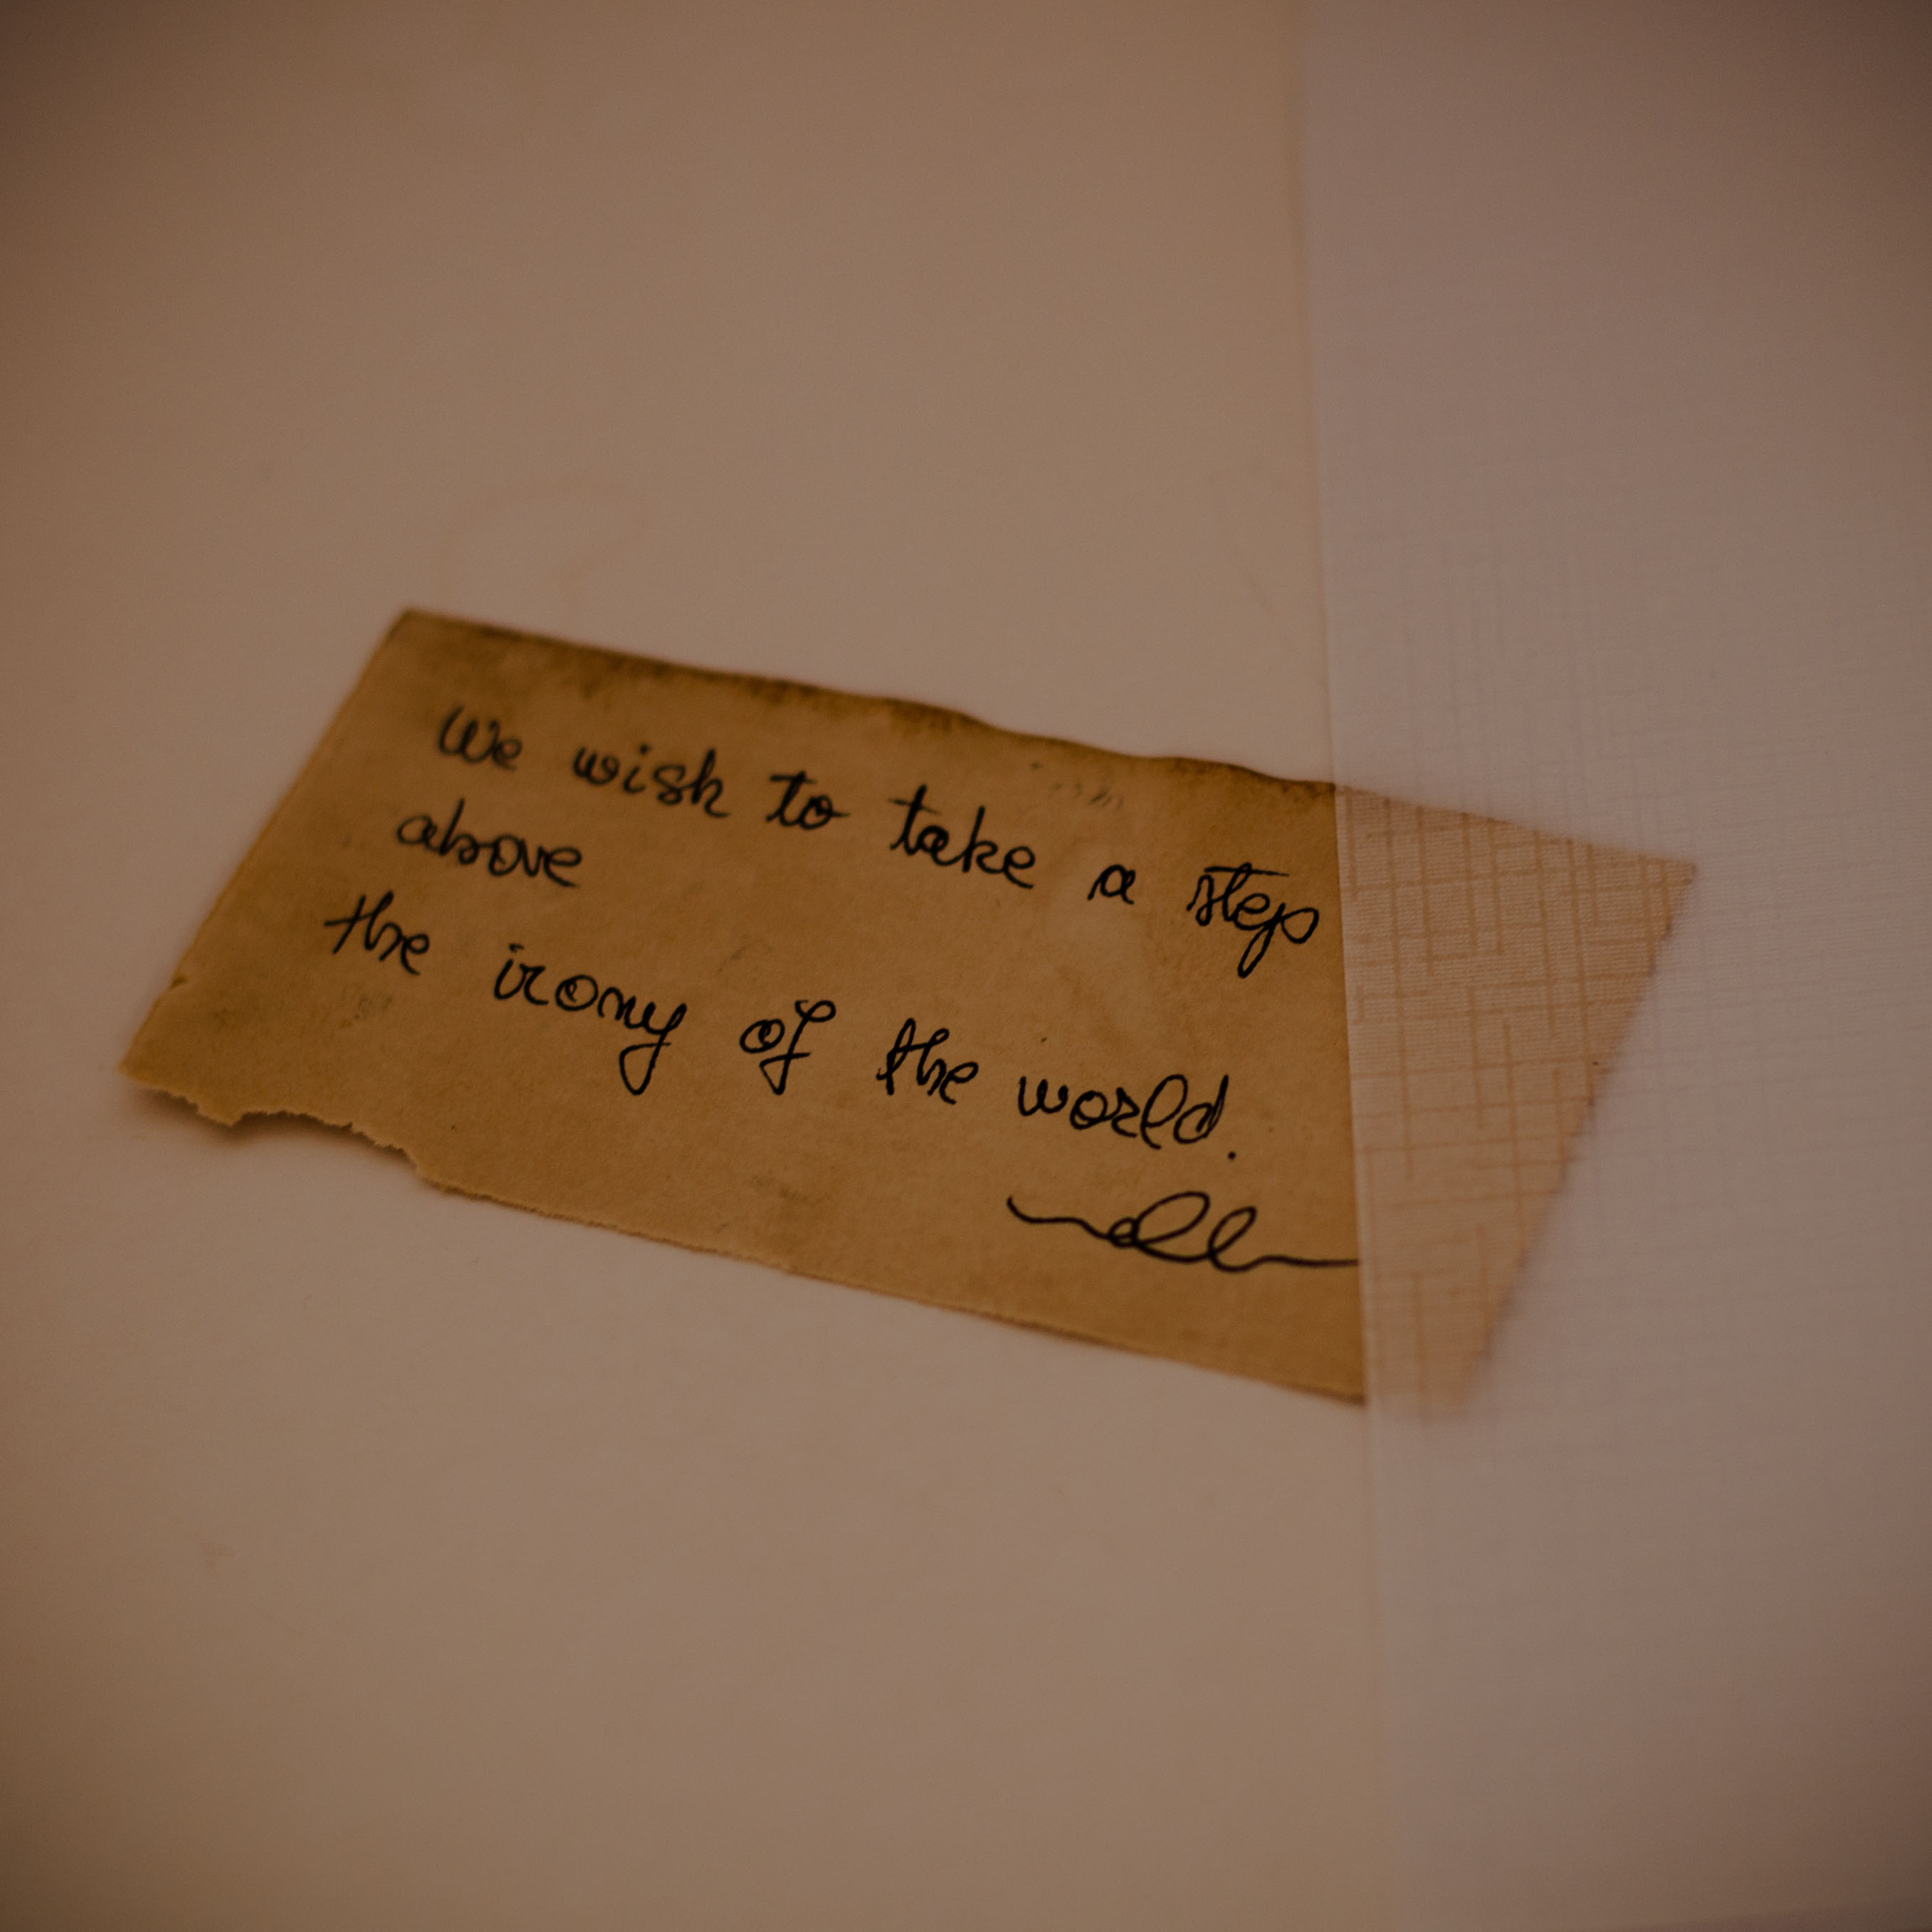 We wish to take a step
above
the irony of the world.